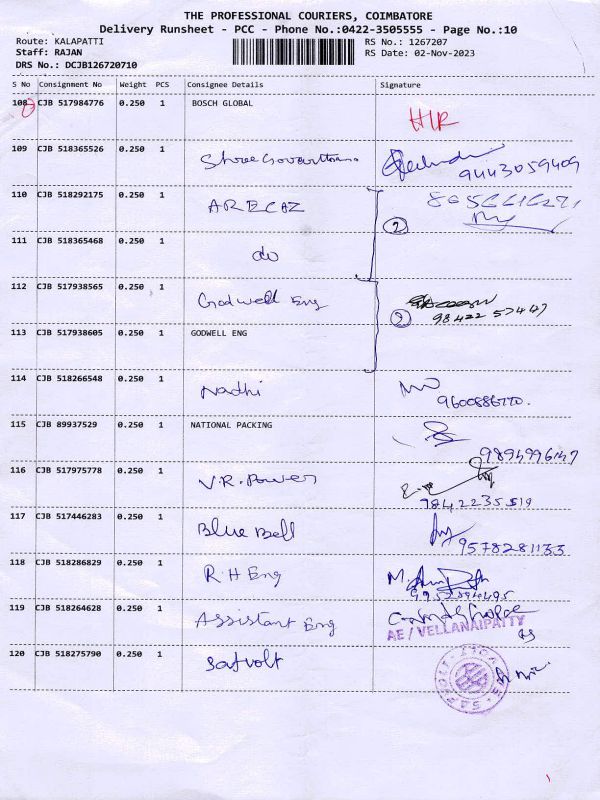 THE PROFESSIONAL COURIERS, COIMBATORE
Delivery Runsheet - PCC - Phone No.:0422-3505555 - Page No.:10
Route: KALAPATTI RS No.: 1267207
Staff: RAJAN RS Date: 02-Nov-2023
DRS No.: DCJB126720710
S No Consignment No Weight PCS Consignee Details Signature
108 CJB 517984776 0.250 1 BOSCH GLOBAL
109 CJB 518365526 0.250 1 9443059409
110 CJB 518292175 0.250 1 ARECAZ
2
111 CJB 518365468 0.250 1 do
112 CJB 517938565 0.250 1 Godwell Eng
2 98422 57447
113 CJB 517938605 0.250 1 GODWELL ENG
114 CJB 518266548 0.250 1 Nadhi
115 CJB 89937529 0.250 1 NATIONAL PACKING
9894996147
116 CJB 517975778 0.250 1 V.R. Power
9842235519
117 CJB 517446283 0.250 1 Blue Bell 9578281133
118 CJB 518286829 0.250 1 R.H Eng
119 CJB 518264628 0.250 1 Assistant Eng
AE / VELLANAIPATTY
120 CJB 518275790 0.250 1 Satvolt